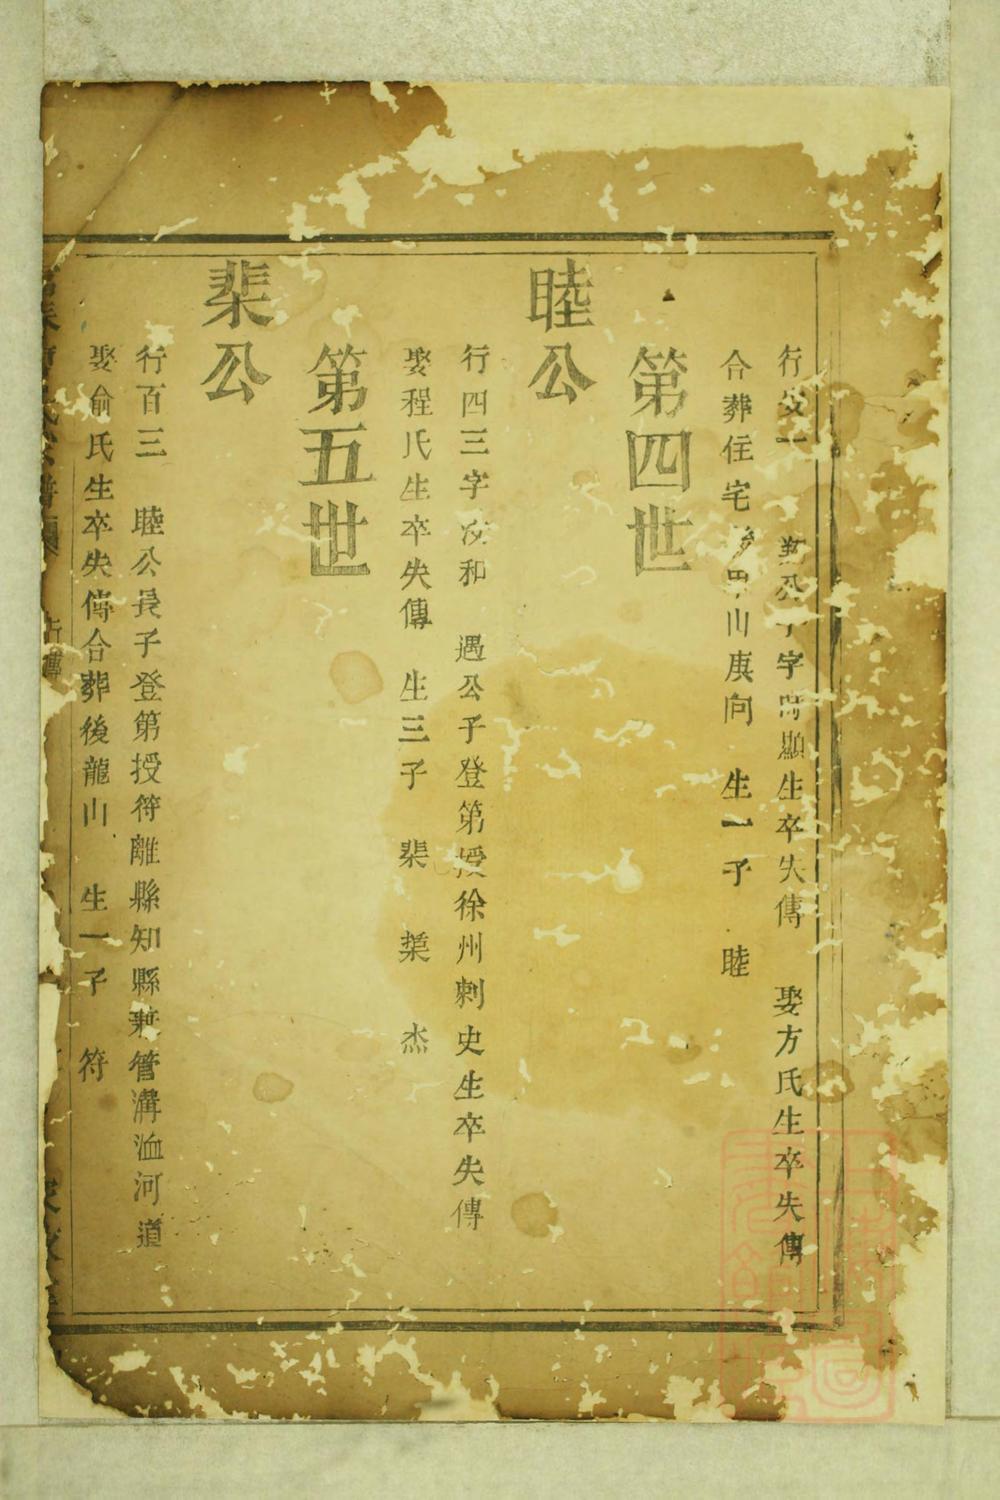 行 一 公子字 顯生卒失傳 娶方氏生卒失傳
合葬住宅 甲山庚向 生一子 睦
第四世
睦公
行四三字 和 遇公子登第授徐州刺史生卒失傳
娶程氏生卒失傳 生三子 棐 榘 杰
第五世
棐公
行百三 睦公長子登第授符離縣知縣兼管溝洫河道
娶俞氏生卒失傳合葬後龍山 生一子 符